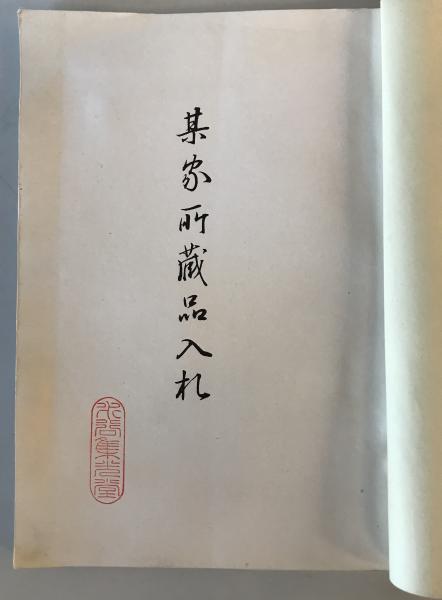 某家所蔵品入札